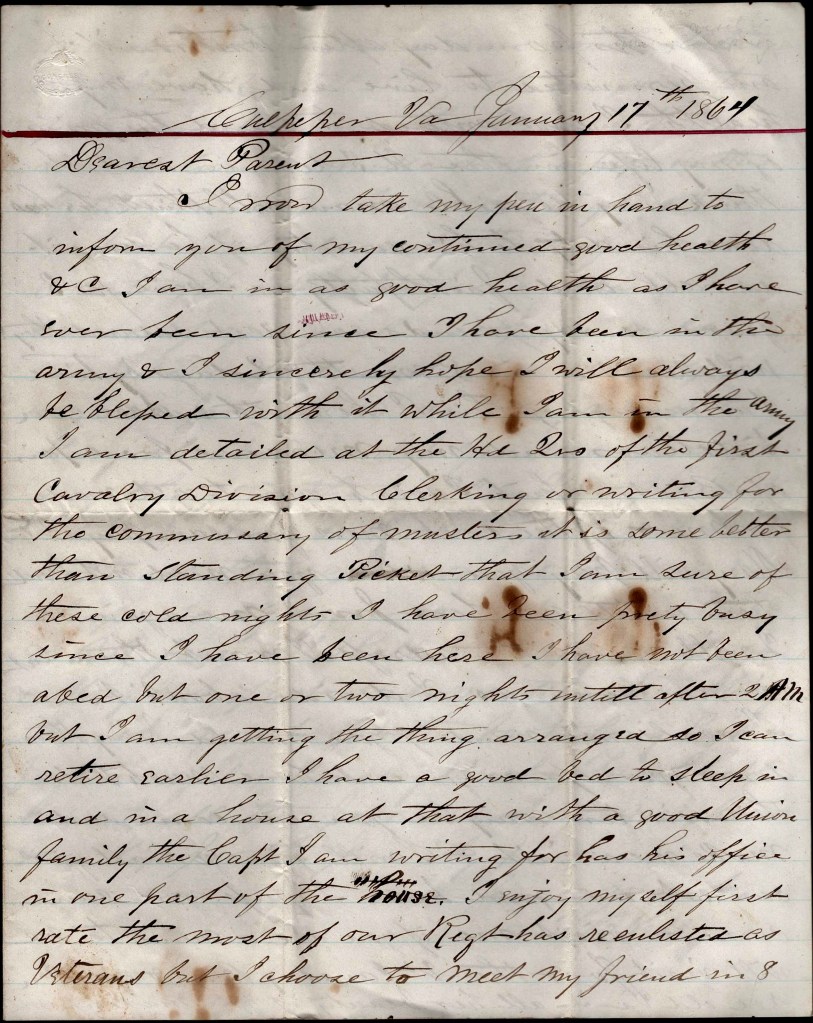 Culpeper Va January 17th 1864
Dearest Parent
I now take my pen in hand to
inform you of my continued good health
&C I am in as good health as I have
ever been since I have been in the
army & I sincerely hope I will always
be blessed with it while I am in the army
I am detailed at the Hd Qrs of the first
Cavalry Division Clerking or writing for
the commissary of musters it is some better
than Standing Picket that I am sure of
these cold nights I have been prety busy
since I have been here I have not been
abed but one or two nights untill after 2 AM
but I am getting the thing arranged so I can
retire earlier I have a good bed to sleep in
and in a house at that with a good Union
family the Capt I am writing for has his office
in one part of the house. I enjoy myself first
rate the most of our Regt has reenlisted as
Veterans but I choose to meet my friend in 8